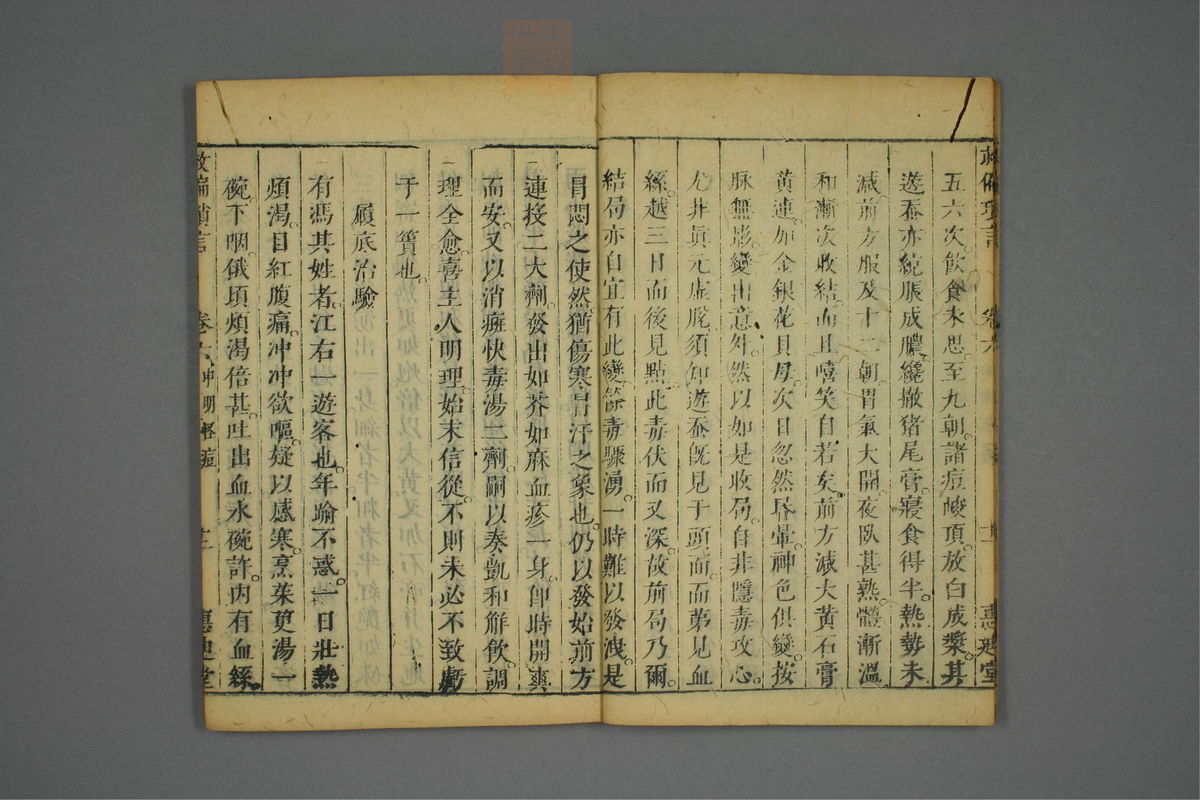 五六次飲食未思至九朝諸痘峻頂放白成漿其
遊蚕亦綻脹成膿纔撤猪尾膏寢食得半熱勢未
減前方服及十一朝胃氣大開夜臥甚熟體漸溫
和漸次收結而且嘻笑自若矣前方減大黃石膏
黃連加金銀花貝母次日忽然昏暈神色俱變按
脉無影變出意外然以如是收局自非隱毒攻心
尤非眞元虛脫須仰遊蚕既見于頭面而第見血
絲越三日而後見點此毒伏而又深故前局乃爾
結局亦自宜有此變餘毒驟湧一時難以發洩是
冐悶之使然猶傷寒冐汗之象也仍以發始前方
連投二大劑發出如芥如麻血疹一身卽時開爽
而安又以消癍快毒湯二劑嗣以奏凱和解飲調
理全愈喜主人明理始末信從不則未必不致虧
于一簣也
履底治驗
有馮其姓者江右一遊客也年踰不惑一日壯熱
煩渴目紅腹痛冲冲欲嘔疑以感寒烹茱萸湯一
碗下咽俄頃煩渴倍甚吐出血水碗許內有血絲
救偏瑣言 卷六 惠迪堂